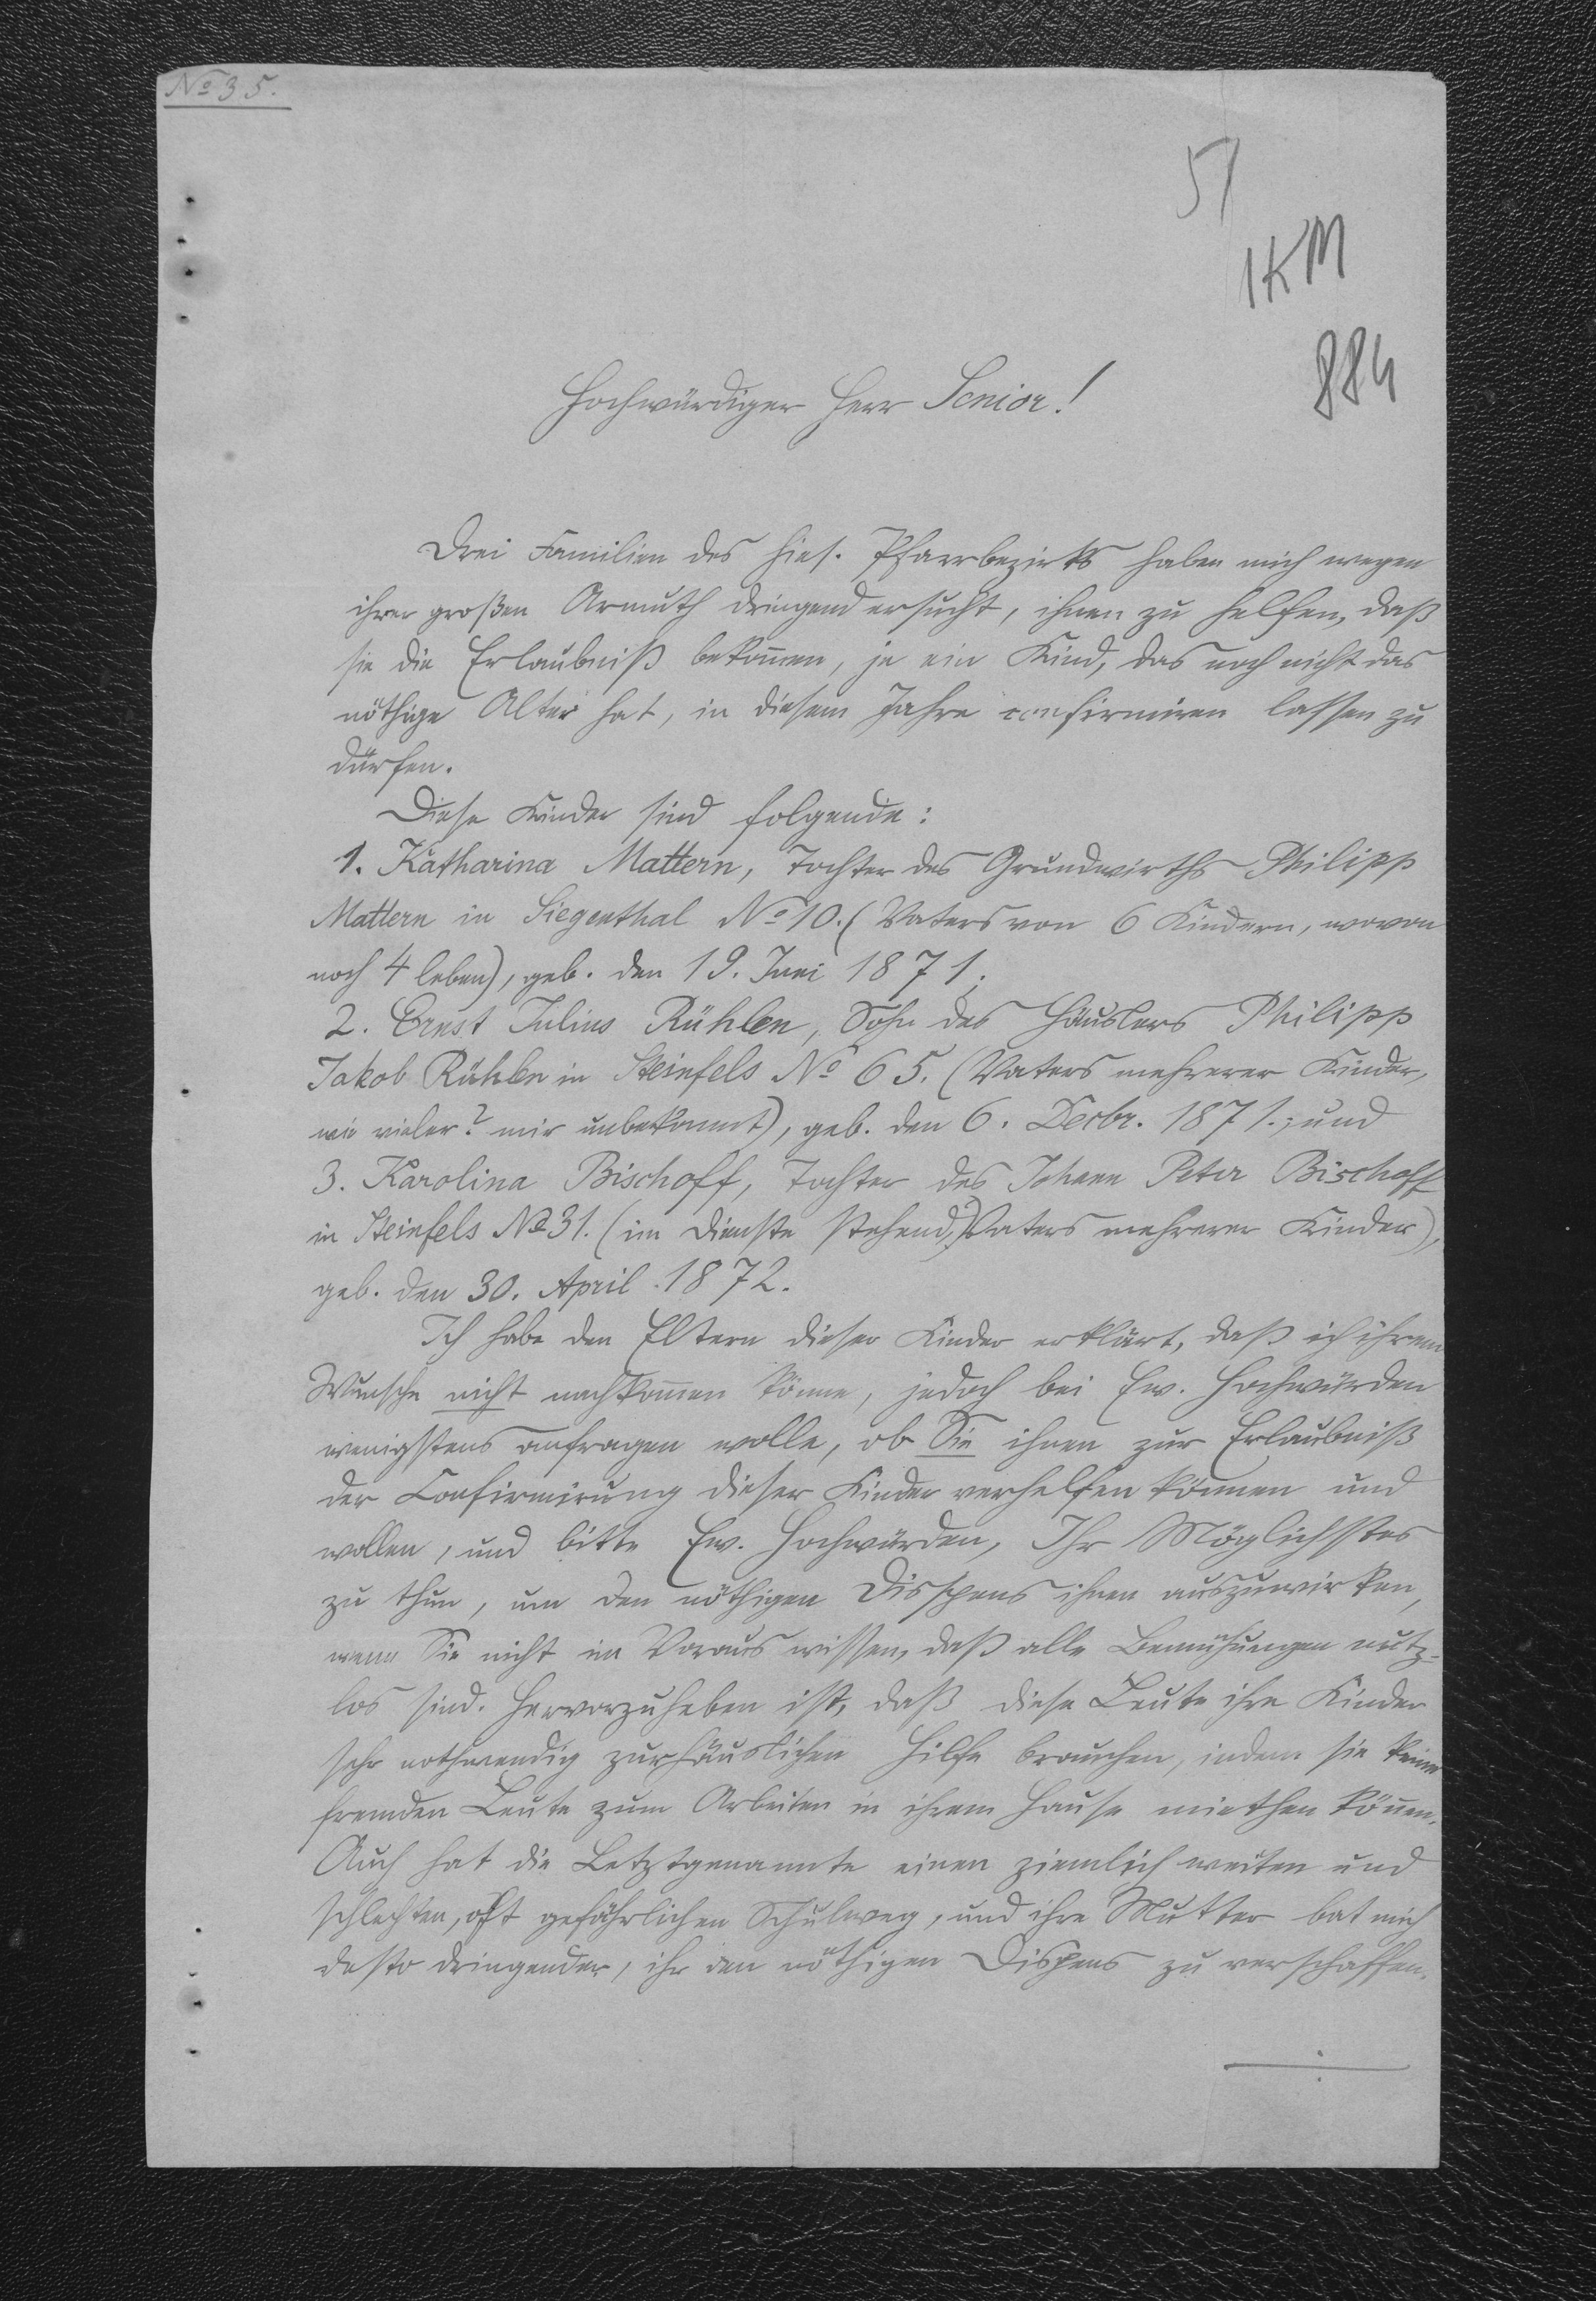 No 35.
51
1KM
884
Hochwürdiger Herr Senior!
Drei Familien des hies. Pfarrbezirks haben mich wegen
ihrer großen Armuth dringend ersucht, ihnen zu helfen, daß
sie die Erlaubniß bekom̄en, je ein Kind, das noch nicht das
nöthige Alter hat, in diesem Jahre confirmiren lassen zu
dürfen.
Diese Kinder sind folgende:
1. Katharina Mattern, Tochter des Grundwirths Philipp
Mattern in Siegenthal No 10. (Vaters von 6 Kindern, wovon
noch 4 leben), geb. den 19. Juni 1871.
2. Ernst Julius Rühlen, Sohn des Häuslers Philipp
Jakob Rühlen in Steinfels No 65. (Vaters mehrerer Kinder,
wie vieler? mir unbekannt), geb. den 6. Decbr. 1871.; und
3. Karolina Bischoff, Tochter des Johann Peter Bischoff
in Steinfels No 31. (im Dienste stehend, Vaters mehrerer Kinder),
geb. den 30. April 1872.
Ich habe den Eltern dieser Kinder erklärt, daß ich ihrem
Wunsche nicht nachkom̄en könne, jedoch bei Ew. Hochwürden
wenigstens anfragen wolle, ob Sie ihnen zur Erlaubniß
der Confirmirung dieser Kinder verhelfen können und
wollen, und bitte Ew. Hochwürden, Ihr Möglichstes
zu thun, um den nöthigen Disspens ihnen auszuwirken,
wenn Sie nicht im Voraus wissen, daß alle Bemühungen nutz-
los sind. Hervorzuheben ist, daß diese Leute ihre Kinder
sehr nothwendig zur häuslichen Hilfe brauchen, indem sie keine
fremden Leute zum Arbeiten in ihrem Hause miethen kön̄en.
Auch hat die Letztgenannte einen ziemlich weiten und
schlechten, oft gefährlichen Schulweg, und ihre Mutter bat mich
desto dringender, ihr den nöthigen Dispens zu verschaffen.